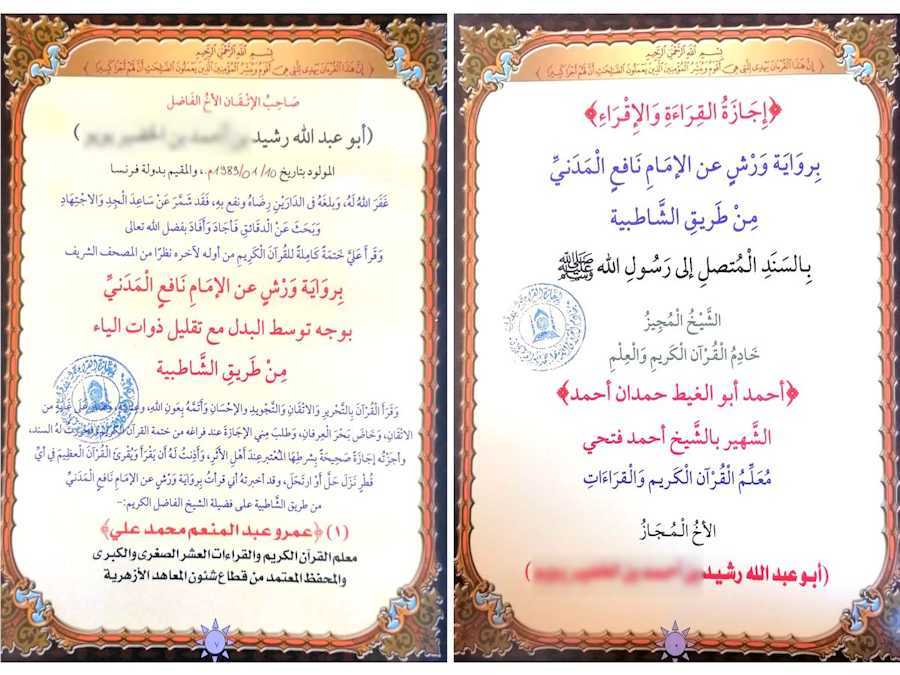 بِسْمِ اللَّهِ الرَّحْمَٰنِ الرَّحِيمِ
﴿إِنَّ هَٰذَا الْقُرْآنَ يَهْدِي لِلَّتِي هِيَ أَقْوَمُ وَيُبَشِّرُ الْمُؤْمِنِينَ الَّذِينَ يَعْمَلُونَ الصَّالِحَاتِ أَنَّ لَهُمْ أَجْرًا كَبِيرًا﴾
﴿إِجَازَةُ القِرَاءَةِ وَالإِقْرَاءِ﴾
بِروَايَة وَرْشٍ عن الإمَامِ نَافعٍ الْمَدَنيِّ
مِنْ طَريقِ الشَّاطبية
بِالسَنَدِ الْمُتصلِ إلى رَسُولِ الله ﷺ
الشَّيْخُ الْمُجِيزُ
خَادِمُ الْقُرْآن الْكَريمِ وَالْعِلْمِ
﴿أحمد أبو الغيط حمدان أحمد﴾
الشَّهير بالشَّيخ أحمد فتحي
مُعَلِّمُ الْقُرْآن الْكَريم وَالْقرَاءَاتِ
الأخُ الْـمُـجَازُ
(أبو عبد الله رشيد
بِسْمِ اللَّهِ الرَّحْمَٰنِ الرَّحِيمِ
﴿إِنَّ هَٰذَا الْقُرْآنَ يَهْدِي لِلَّتِي هِيَ أَقْوَمُ وَيُبَشِّرُ الْمُؤْمِنِينَ الَّذِينَ يَعْمَلُونَ الصَّالِحَاتِ أَنَّ لَهُمْ أَجْرًا كَبِيرًا﴾
صَاحِبُ الإِتْقَان الأخُ الفَاضل
(أبو عبد الله رشيد
المولود بتاريخ 10/ 01/ 1989م.، والمقيم بدولة فرنسا
غَفَرَ اللهُ لَهُ، وَبلغهُ فى الدَارَيْنِ رِضَاهُ ونفع بهِ، فَقَد شَمَّرَ عَنْ سَاعِدَ الْجِدِ وَالاجْتِهَادِ
وَبَحَثَ عَنْ الدقائقِ فَأَجَادَ وَأَفَادَ بفضل الله تعالى
وَقَرأَ عَليَّ خَتمَةً كَامِلةً للقُرآنِ الْكَريمِ من أوله لآخره نظرًا من المصحف الشريف
بِروَايَة وَرْشٍ عن الإمَامِ نَافعٍ الْمَدَنيِّ
بوجه توسط البدل مع تقليل ذوات الياء
مِنْ طَريقِ الشَّاطبية
وَقَرَأ الْقُرْآنَ بِالتَّحْرِيرِ وَالاتْقَانِ وَالتَّجْويدِ والإِحْسَانِ وَأَتَمَّهُ بِعَونِ اللهِ، من
الاتْقَانِ، وَخَاضَ بَحْرَ العِرفَانِ، وَطَلبَ مِني الإجَازَةَ عند فراغه من ختمة القرآن له السند،
وأجزتُه إجَازَةً صَحيحَةً بشرطِهَا المُعْتبرِ عندَ أهْلِ الأثَرِ، وَأَذِنتُ لَهُ أن يَقْرَأَ وَيُقْرِئَ القُرآنَ العظيمَ في أيِّ
قُطْرٍ نَزَلَ حَلَّ أوْ ارتَحَلَ، وقد أخبرتهُ أني قرأتُ بِروَايَةِ وَرْشٍ عن الإمَامِ نَافعٍ الْمَدَنيِّ
من طريق الشَّاطبية على فضيلة الشيخ الفاضل الكريم:-
(١) ﴿عمرو عبد المنعم محمد علي﴾
معلم القرآن الكريم والقراءات العشر الصغرى والكبرى
والمحفظ المعتمد من قطاع شئون المعاهد الأزهرية
٧